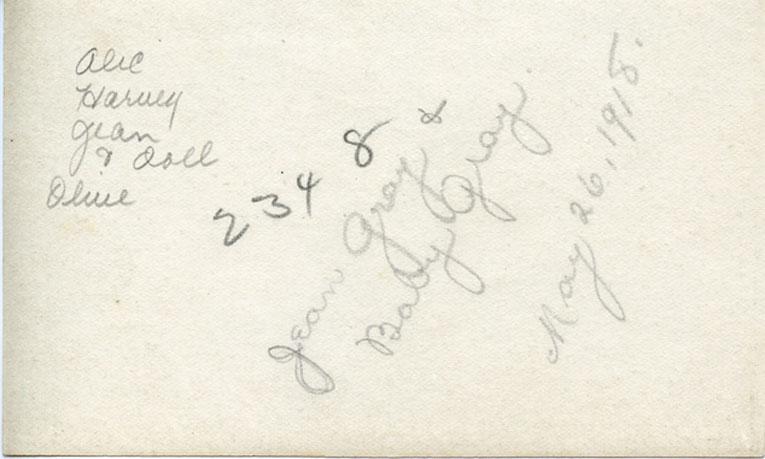 Alec
Harvey
Jean
& Doll
Olive
2 3 4 8 x
Jean Gray
Baby Gray.
May 26, 1918.